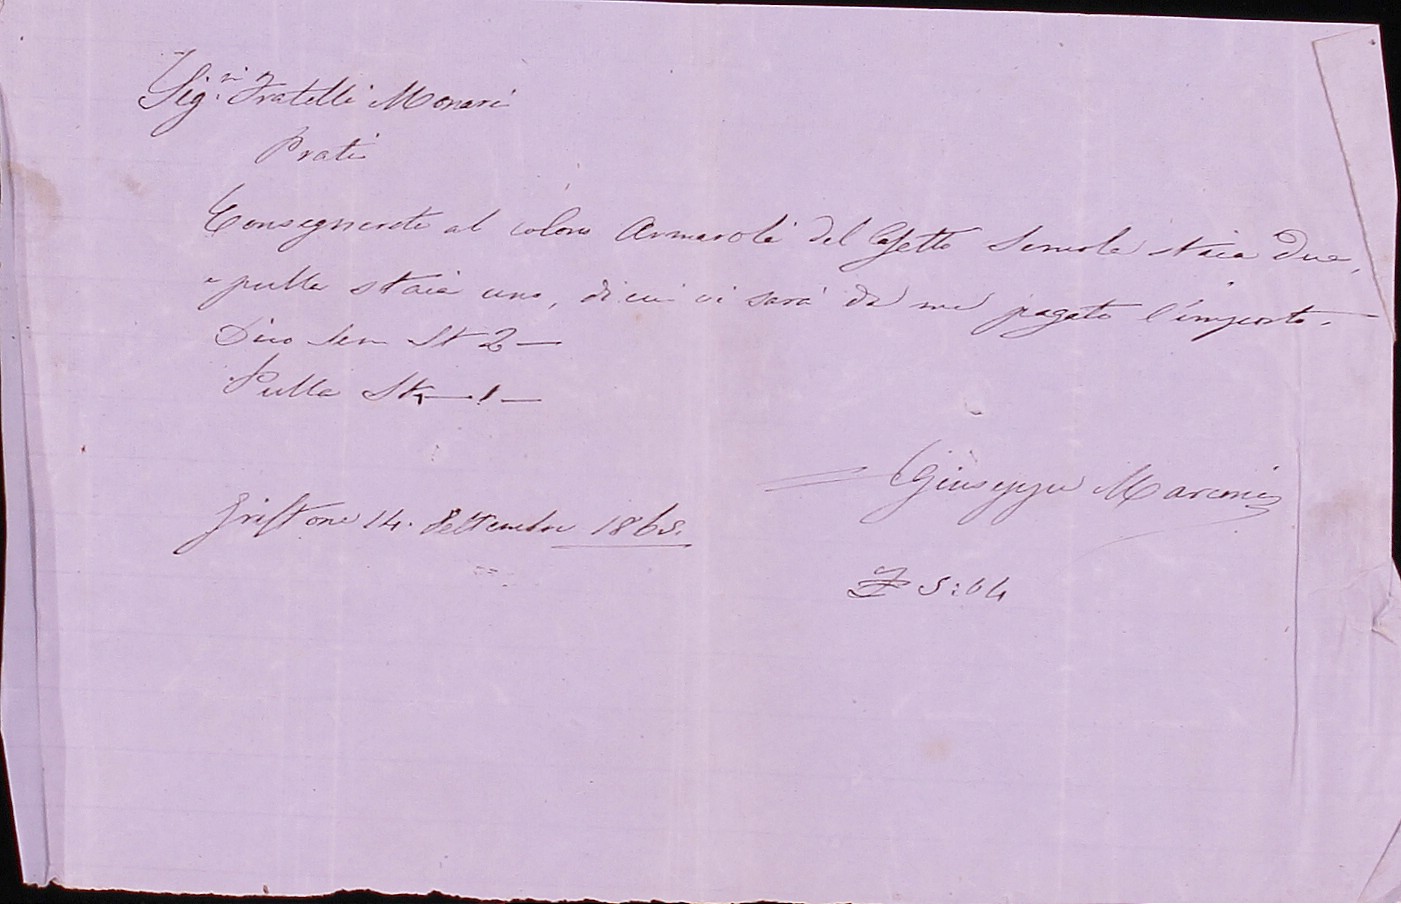 Sig.ri Fratelli Monari
Prati
Consegnerete al colono Armaroli del Casetto Semola staia due,
e pulla staia uno, di cui vi sarà da me pagato l'importo.
Dico Sem St 2
Pulla St 1
Giuseppe Marconi
Griffone 14. Settembre 1865.
5:04